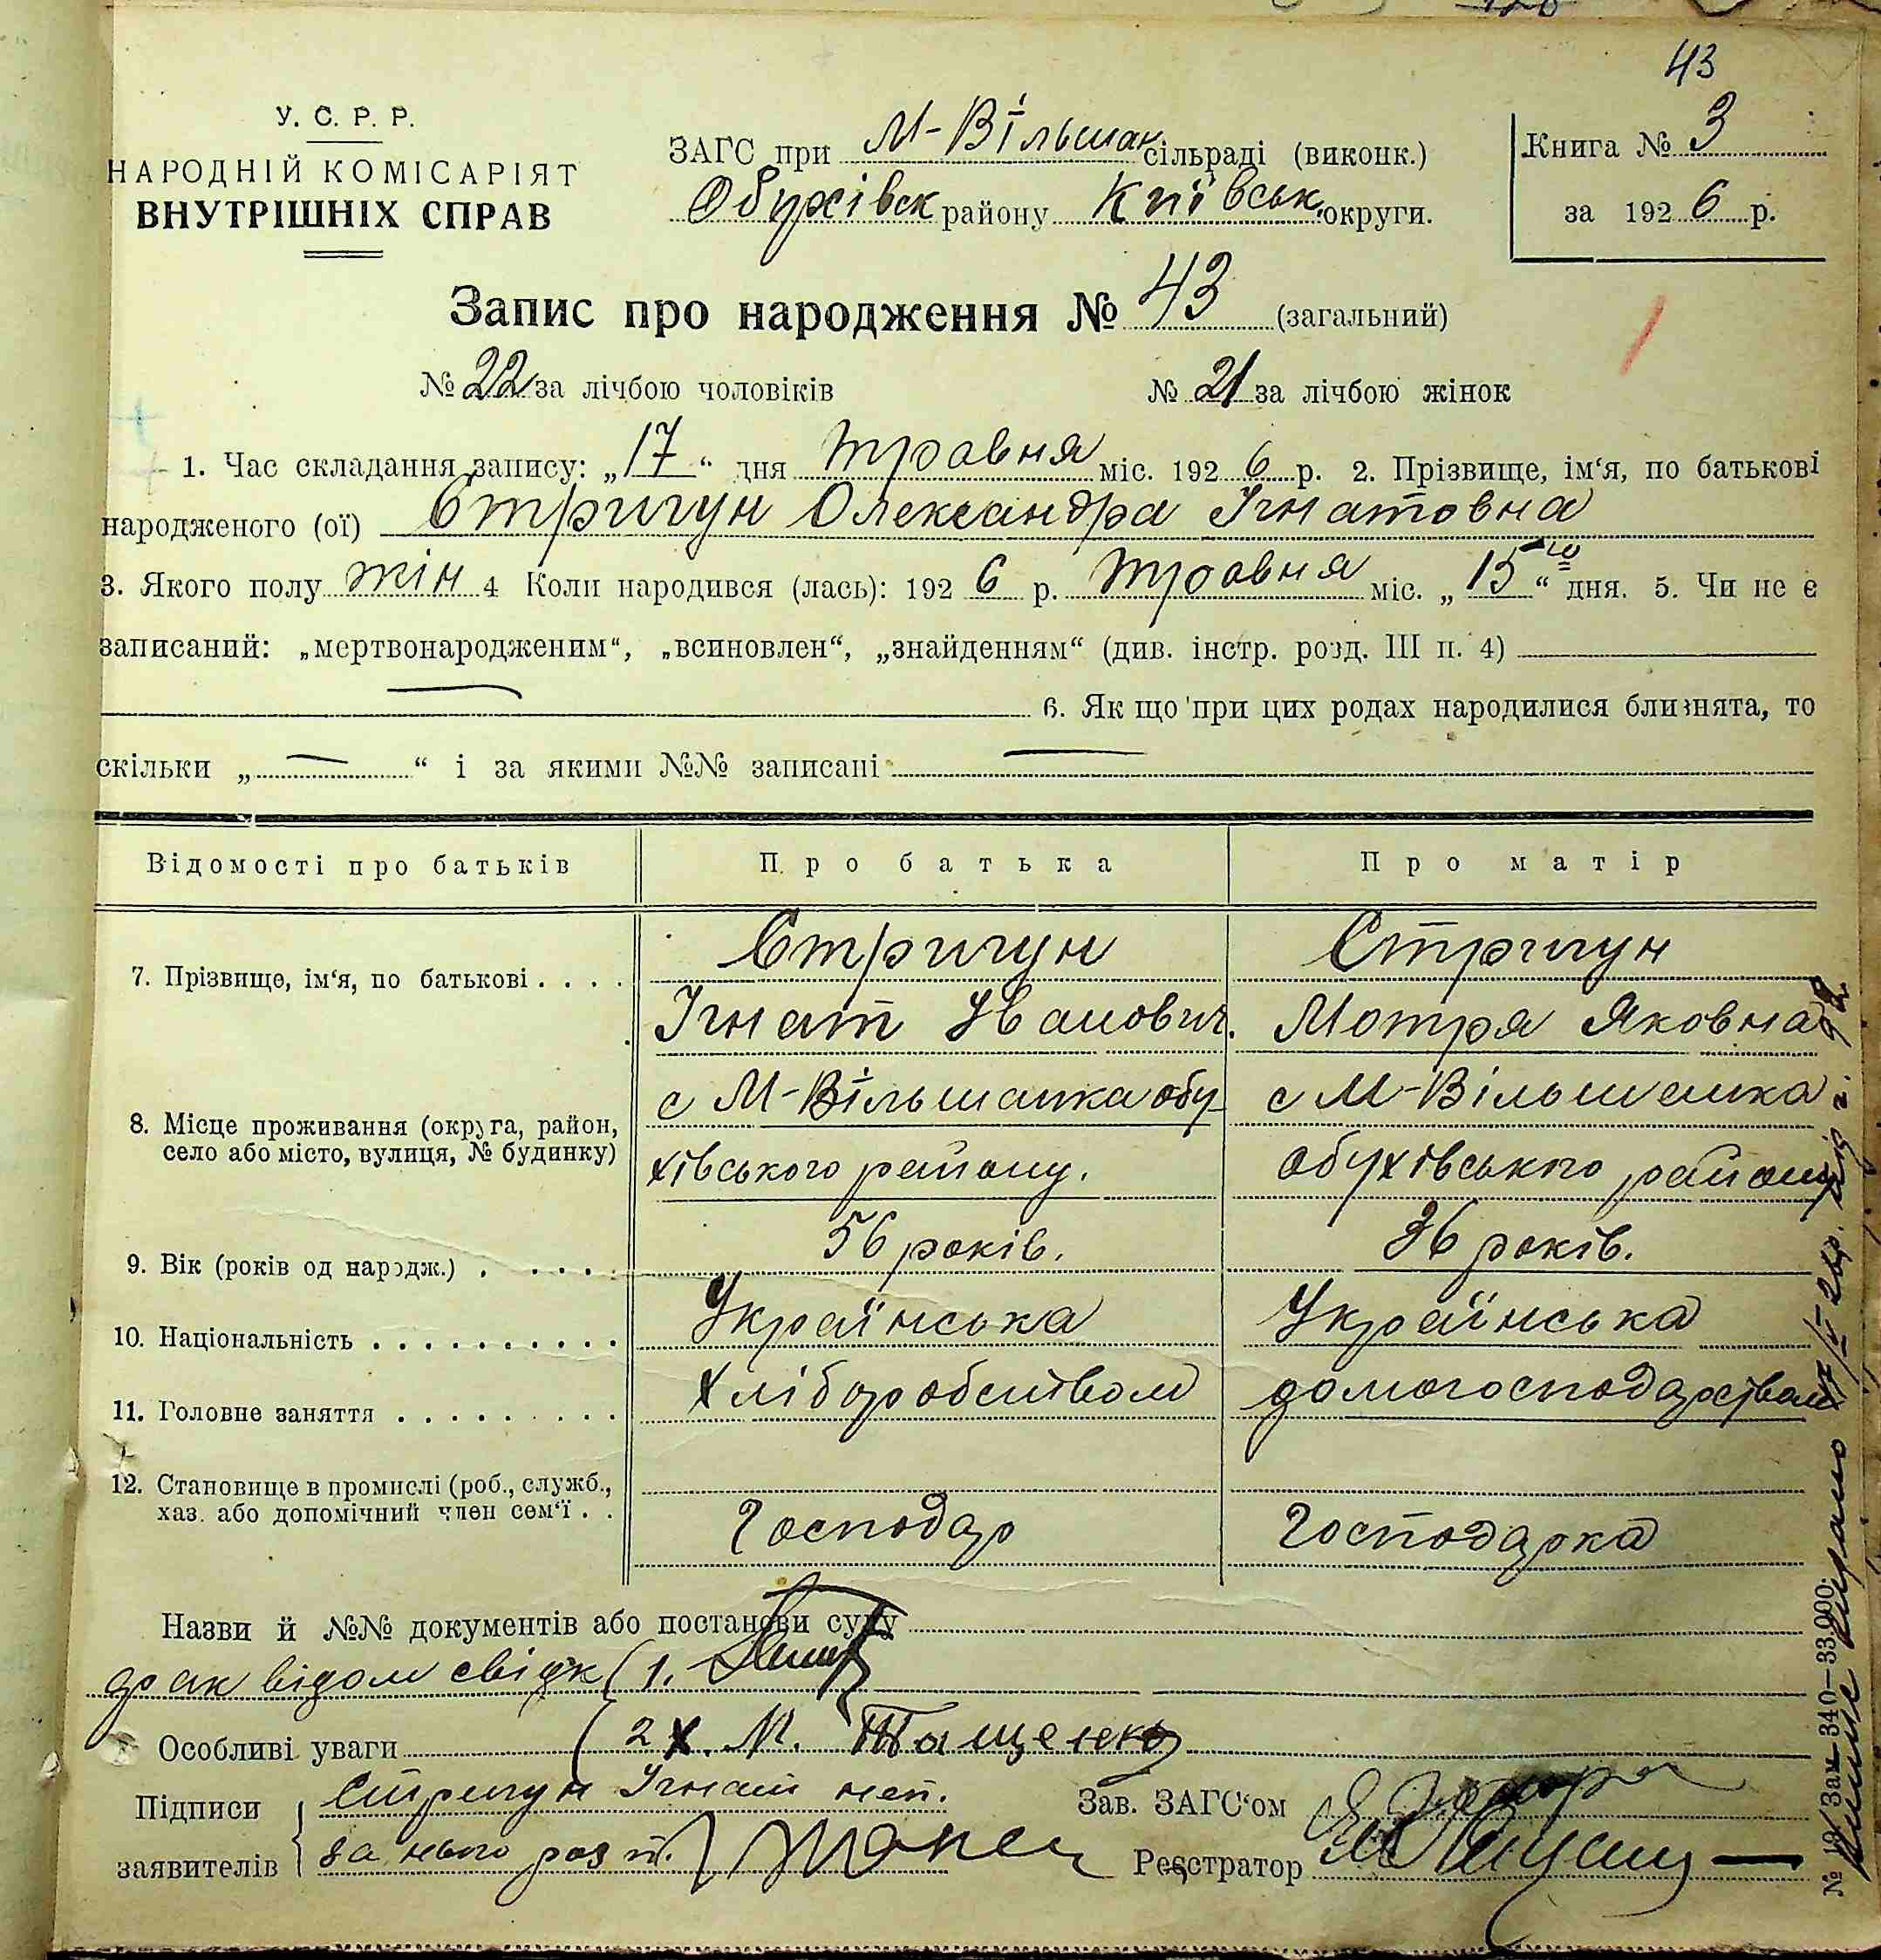 43
У. С. Р. Р.
НАРОДНІЙ КОМІСАРІЯТ
ВНУТРІШНІХ СПРАВ
ЗАГС при М-Вільшан сільраді (виконк.)
Обухівськ району Київськ. округи.
Книга № 3
за 1926 р.
Запис про народження № 43 (загальний)
№ 22 за лічбою чоловіків № 21 за лічбою жінок
1. Час складання запису: „17“ дня травня міс. 1926 р. 2. Прізвище, ім‘я, по батькові
народженого (ої) Стригун Олександра Ігнатовна
3. Якого полу жін 4 Коли народився (лась): 1926 р. травня міс. „15го“ дня. 5. Чи не є
записаний: „мертвонародженим“, „всиновлен“, „знайденням“ (див. інстр. розд. III п. 4)
6. Як що при цих родах народилися близнята, то
скільки „ “ і за якими №№ записані
Відомості про батьків Про батька Про матір
7. Прізвище, ім‘я, по батькові . . . . Стригун Стригун
Ігнат Іванович. Мотря Яковна
8. Місце проживання (округа, район, село або місто, вулиця, № будинку) с М-Вільшанка обу- с М-Вільшанка
хівського району. обухівського району
9. Вік (років од народж.) . . . . . 56 років. 36 років.
10. Національність . . . . . . . . . . Українська Українська
11. Головне заняття . . . . . . . . . Хліборобством домогосподарством
12. Становище в промислі (роб., служб., хаз. або допомічний член сем‘ї . . Господар Господарка
Назви й №№ документів або постанови суду
відом свідк ( 1.
Особливі уваги ( 2 Х. М. Тащенко
Підписи заявителів { Стригун Ігнат неп.
за нього розп.
Зав. ЗАГС‘ом
Реєстратор
Зам 340—33.000.